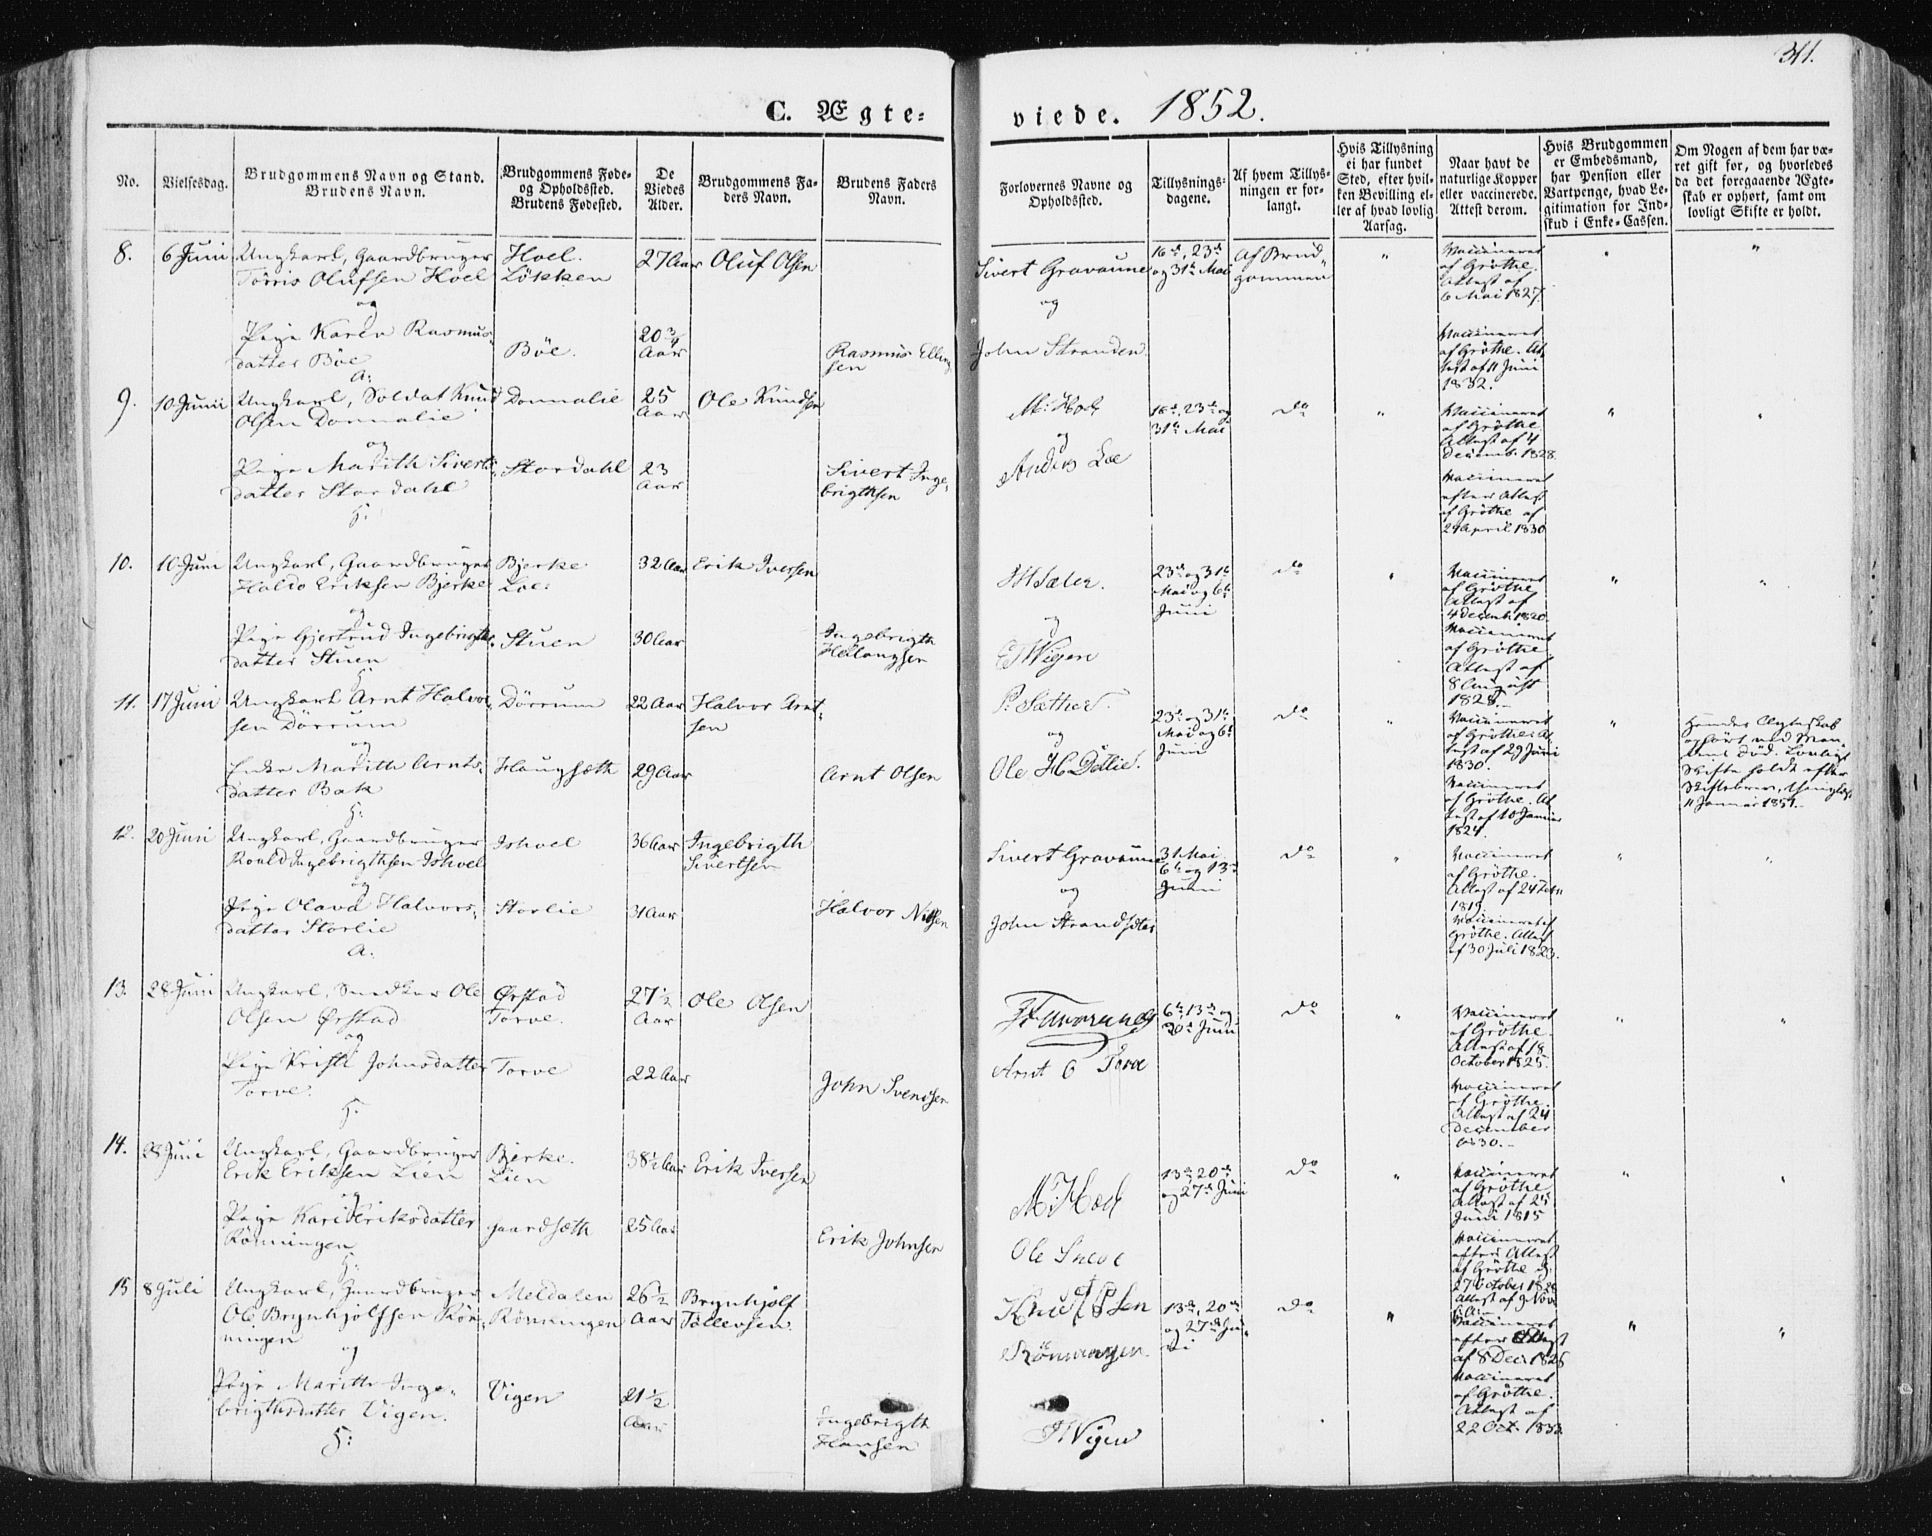 311.
C. Ægte-
viede. 1852.
No.
Vielsesdag.
Brudgommens Navn og Stand.
Brudens Navn.
Brudgommens Føde-
og Opholdssted.
Brudens Fødested.
De
Viedes
Alder.
Brudgommens Fa-
ders Navn.
Brudens Faders
Navn.
Forlovernes Navne og
Opholdssted.
Tillysnings-
dagene.
Af hvem Tillys-
ningen er for-
langt.
Hvis Tillysning
ei har fundet
Sted, efter hvil-
ken Bevilling el-
ler af hvad lovlig
Aarsag.
Naar havt de
naturlige Kopper
eller vaccinerede.
Attest derom.
Hvis Brudgommen
er Embedsmand,
har Pension eller
Vartpenge, hvad Le-
gitimation for Ind-
skud i Enke-Cassen.
Om Nogen af dem har væ-
ret gift før, og hvorledes
da det foregaaende Ægte-
skab er ophørt, samt om
lovligt Skifte er holdt.
8.
6 Juni
Ungkarl, Gaardbruger
Tørris Olufsen Hoel
og
Pige Karen Rasmus-
datter Böe
A:
Hoel.
Løkken
Böe.
27 Aar
20 3/4
Aar
Oluf Olsen
Rasmus Elling
sen
Sivert Gravaune
og
John Stranden
16de, 23de
og 31te Mai
Af Brud
gommen
"
Vaccineret
af Gröthe.
Attest af
6 Mai 1827.
Vaccineret
af Gröthe. At-
test af 11 Juni
1832.
"
"
9.
10 Juni
Ungkarl, Soldat Knud
Olsen Donnalie
og
Pige Marith Siverts-
datter Stordahl
H:
Donnalie
Stordahl
25
Aar
23
Aar
Ole Knudsen
Sivert Inge-
brigthsen
M: Hoel
og
Anders Loe
16de, 23de og
31te Mai
do
"
Vaccineret
af Gröthe
Attest af 4
Decemb: 1828
Vaccineret
efter Attest
af Gröthe af
24 April 1830
"
"
10.
10 Juni
Ungkarl, Gaardbruger
Haldo Eriksen Bjerke
og
Pige Gjertrud Ingebrigts-
datter Stuen
H:
Bjerke
Loe.
Stuen
32 Aar
30 Aar
Erik Iversen
Ingebrigth
og
Vigen
23de og 31te
Mai og 6te
Juni
do
"
Vaccineret
af Gröthe
Attest af
4 Decemb: 1820
Vaccineret
af Gröthe
Attest af
8 August
1828.
"
"
11.
17 Juni
Ungkarl Arnt Halvor-
sen Dörrum
og
Enke Marith Arnts-
datter Bak
H:
Dörrum
Haugsæth
22 Aar
29 Aar
Halvor Arnt-
sen
Arnt Olsen
P: Sæther
og
Ole H Dellie
23de og 31te
Mai og 6te
Juni
do
"
Vaccineret
af Gröthe. At-
test af 29 Juni
1830.
Vaccineret
af Gröthe. At-
test af 10 Januar
1824.
"
Hendes Ægteskab
ophørt ved Man-
dens Död. Lovligt
Skifte holdt efter
11 Januar 1851.
12.
20 Juni
Ungkarl, Gaardbruger
Roald Ingebrigthsen Ishoel
og
Pige Olava Halvors-
datter Storlie
A.
Ishoel
Storlie
36 Aar
31 Aar
Ingebrigth
Sivertsen
Halvor Nilsen
Sivert Gravaune
og
John Strandsæter
31 Mai
6te og 13de
Juni
do
"
Vaccineret
af Gröthe.
Attest af 24
1819.
Vaccineret af
Gröthe. Attest
af 30 Juli 1820.
"
"
13.
28 Juni
Ungkarl, Snedker Ole
Olsen Ørstad
og
Pige Kristi Johnsdatter
Torve.
H.
Ørstad
Torve.
Torve
27 1/2
Aar
22 Aar
Ole Olsen
John Svendsen
Arnt O Torve
6te, 13de og
20de Juni
do
"
Vaccineret
af Gröthe.
Attest af 18
October 1825.
Vaccineret
af Gröthe.
Attest af 24
December
1830.
"
"
14.
28 Juni
Ungkarl, Gaardbruger
Erik Eriksen Lien
og
Pige Kari Eriksdatter
Rönningen
H:
Bjerke.
Lien
Gaardsæth
38 1/2 Aar
25 Aar
Erik Iversen
Erik Johnsen
M: Hoel
Ole Sneve
13de, 20de
og 27de Juni
do
"
Vaccineret
af Gröthe
Attest af 24
Juni 1815
Vaccineret
efter Attest
af Gröthe af
27 October 1828
"
"
15
8 Juli
Ungkarl, Gaardbruger
Ole Brynhjolfsen Rön-
ningen
og
Pige Marith Inge-
brigthsdatter Vigen.
H:
Meldalen
Rönningen
Vigen
26 1/2
Aar
21 1/2
Aar
Brynhjolf
Tollevsen.
Ingebrigth
Hansen
Rönningen.
Vigen
13de, 20de
og 27de Ju-
ni
do
"
Attest af 9 Nov
Vaccineret
efter Attest
af 8 Dec: 1826
Vaccineret
af Gröthe.
Attest af
22 Oct. 1833
"
"